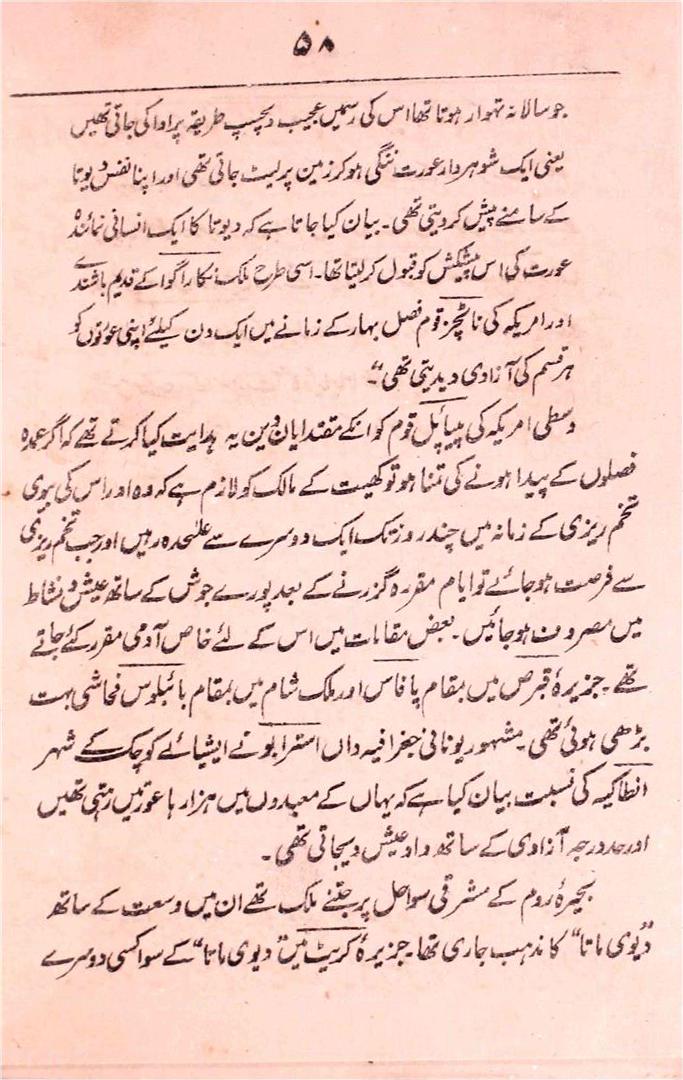 ۵۸
جو سالانہ تہوار ہوتا تھا اس کی رسمیں عجیب دلچسپ طریقہ پر ادا کی جاتی تھیں
یعنی ایک شوہردار عورت ننگی ہوکر زمین پر لیٹ جاتی تھی اور اپنا نفس دیوتا
کے سامنے پیش کر دیتی تھی۔ بیان کیا جاتا ہے کہ دیوتا کا ایک انسانی نمائندہ
عورت کی اس پیشکش کو قبول کر لیتا تھا۔ اسی طرح ملک نکاراگوا کے قدیم باشندے
اور امریکہ کی ناٹچز قوم فصل بہار کے زمانے میں ایک دن کیلئے اپنی عورتوں کو
ہر قسم کی آزادی دیدیتی تھی"۔
وسطی امریکہ کی پیپائل قوم کو انکے مقتدایان دین یہ ہدایت کیا کرتے تھے کہ اگر عمدہ
فصلوں کے پیدا ہونے کی تمنا ہو تو کھیت کے مالک کو لازم ہے کہ وہ اور اس کی بیوی
تخم ریزی کے زمانہ میں چند روز تک ایک دوسرے سے علٰحدہ رہیں اور جب تخم ریزی
سے فرصت ہو جائے تو ایام مقررہ گزرنے کے بعد پورے جوش کے ساتھ عیش و نشاط
میں مصروف ہو جائیں۔ بعض مقامات میں اس کے لئے خاص آدمی مقرر کئے جاتے
تھے۔ جزیرۂ قبرص میں بمقام پافاس اور ملک شام میں بمقام بائبلوس فحاشی بہت
بڑھی ہوئی تھی۔ مشہور یونانی جغرافیہ داں استرابو نے ایشیائے کوچک کے شہر
انطاکیہ کی نسبت بیان کیا ہے کہ یہاں کے معبدوں میں ہزارہا عورتیں رہتی تھیں
اور حد درجہ آزادی کے ساتھ داد عیش دیجاتی تھی۔
بحیرۂ روم کے مشرقی سواحل پر جتنے ملک تھے ان میں وسعت کے ساتھ
"دیوی ماتا" کا مذہب جاری تھا۔ جزیرۂ کریٹ میں "دیوی ماتا" کے سوا کسی دوسرے